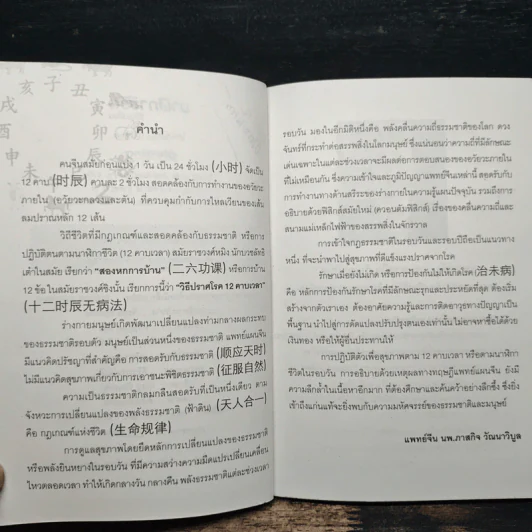 亥 子 丑
戌 寅
酉 卯
申 辰
未
คำนำ
คนจีนสมัยก่อนแบ่ง 1 วัน เป็น 24 ชั่วโมง (小时) จัดเป็น
12 คาบ (时辰) คาบละ 2 ชั่วโมง สอดคล้องกับการทำงานของอวัยวะ
ภายใน (อวัยวะกลวงและตัน) ที่ควบคุมกำกับการไหลเวียนของเส้น
ลมปราณหลัก 12 เส้น
วิถีชีวิตที่มีกฎเกณฑ์และสอดคล้องกับธรรมชาติ หรือการ
ปฏิบัติตนตามนาฬิกาชีวิต (12 คาบเวลา) สมัยราชวงศ์หมิง นักบวชลัทธิ
เต๋าในสมัย เรียกว่า "สองหกการบ้าน" (二六功课) หรือการบ้าน
12 ข้อ ในสมัยราชวงศ์ชิงนั้น เรียกการนี้ว่า "วิธีปราศโรค 12 คาบเวลา"
(十二时辰无病法)
ร่างกายมนุษย์เกิดพัฒนาเปลี่ยนแปลงท่ามกลางผลกระทบ
ของธรรมชาติรอบตัว มนุษย์เป็นส่วนหนึ่งของธรรมชาติ แพทย์แผนจีน
มีแนวคิดปรัชญาที่สำคัญคือ การสอดรับกับธรรมชาติ (顺应天时)
ไม่มีแนวคิดสุขภาพเกี่ยวกับการเอาชนะพิชิตธรรมชาติ (征服自然)
ความเป็นธรรมชาติกลมกลืนสอดรับที่เป็นหนึ่งเดียว ตาม
จังหวะการเปลี่ยนแปลงของพลังธรรมชาติ (ฟ้าดิน) (天人合一)
คือ กฎเกณฑ์แห่งชีวิต (生命规律)
การดูแลสุขภาพโดยยึดหลักการเปลี่ยนแปลงของธรรมชาติ
หรือพลังยินหยางในรอบวัน ที่มีความสว่างความมืดแปรเปลี่ยนเคลื่อน
ไหวตลอดเวลา ทำให้เกิดกลางวัน กลางคืน พลังธรรมชาติแต่ละช่วงเวลา
รอบวัน มองในอีกมิติหนึ่งคือ พลังคลื่นความถี่ธรรมชาติของโลก ดวง
จันทร์ที่กระทำต่อสรรพสิ่งในโลกมนุษย์ ซึ่งแน่นอนว่าความถี่ที่มีลักษณะ
เด่นเฉพาะในแต่ละช่วงเวลาจะมีผลต่อการตอบสนองของอวัยวะภายใน
ที่ไม่เหมือนกัน ซึ่งความเข้าใจและภูมิปัญญาแพทย์จีนเหล่านี้ สอดรับกับ
การทำงานทางด้านสรีระของร่างกายในความรู้แผนปัจจุบัน รวมถึงการ
อธิบายด้วยฟิสิกส์สมัยใหม่ (ควอนตัมฟิสิกส์) เรื่องของคลื่นความถี่และ
สนามแม่เหล็กไฟฟ้าของสรรพสิ่งในจักรวาล
การเข้าใจกฎธรรมชาติในรอบวันและรอบปีถือเป็นแนวทาง
หนึ่ง ที่จะนำพาไปสู่สุขภาพที่ดีแข็งแรงปราศจากโรค
รักษาเมื่อยังไม่เกิด หรือการป้องกันไม่ให้เกิดโรค (治未病)
คือ หลักการป้องกันรักษาโรคที่มีลักษณะรุกและประหยัดที่สุด ต้องเริ่ม
สร้างจากตัวเราเอง ต้องอาศัยความรู้และการติดอาวุธทางปัญญาเป็น
พื้นฐาน นำไปสู่การดัดแปลงปรับปรุงตนเองเท่านั้น ไม่อาจหาซื้อได้ด้วย
เงินทอง หรือให้ผู้อื่นประทานให้
การปฏิบัติตัวเพื่อสุขภาพตาม 12 คาบเวลา หรือตามนาฬิกา
ชีวิตในรอบวัน การอธิบายด้วยเหตุผลทางทฤษฎีแพทย์แผนจีน ยังมี
ความลึกล้ำในเนื้อหาอีกมาก ที่ต้องศึกษาและค้นคว้าอย่างลึกซึ้ง ซึ่งยิ่ง
เข้าถึงแก่นแท้จะยิ่งพบกับความมหัศจรรย์ของธรรมชาติและมนุษย์
แพทย์จีน นพ.ภาสกิจ วัณนาวิบูล